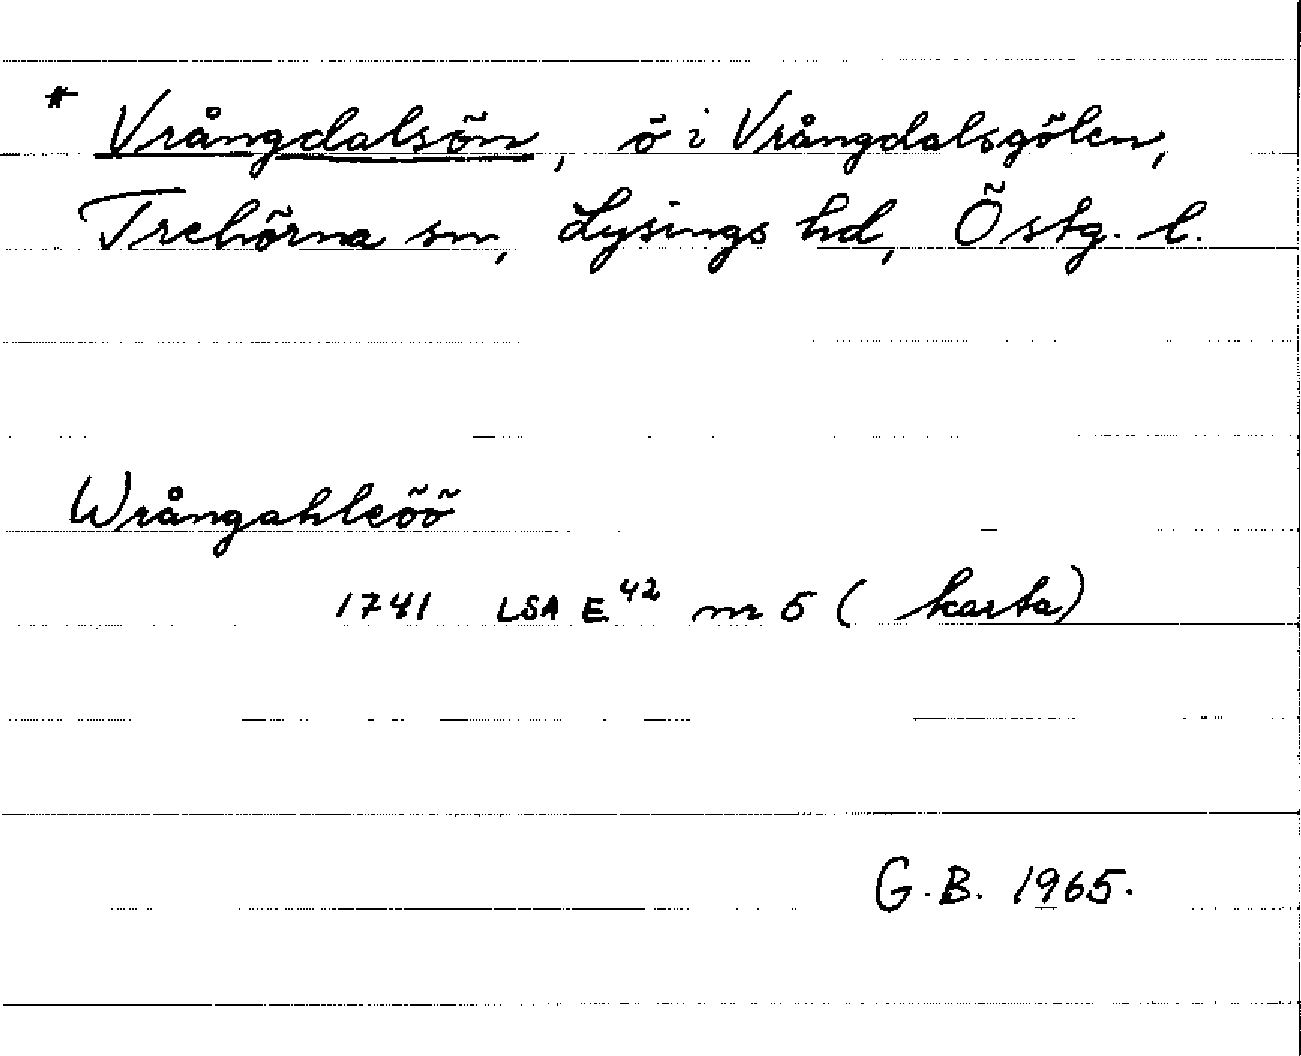 * Vrångdalsön, ö i Vrångdalsgölen,
Trehörna sn, Lysings hd, Östg. l.
Wrångahleöö
1741 LSA E 42 nr 5 (karta)
G.B. 1965.